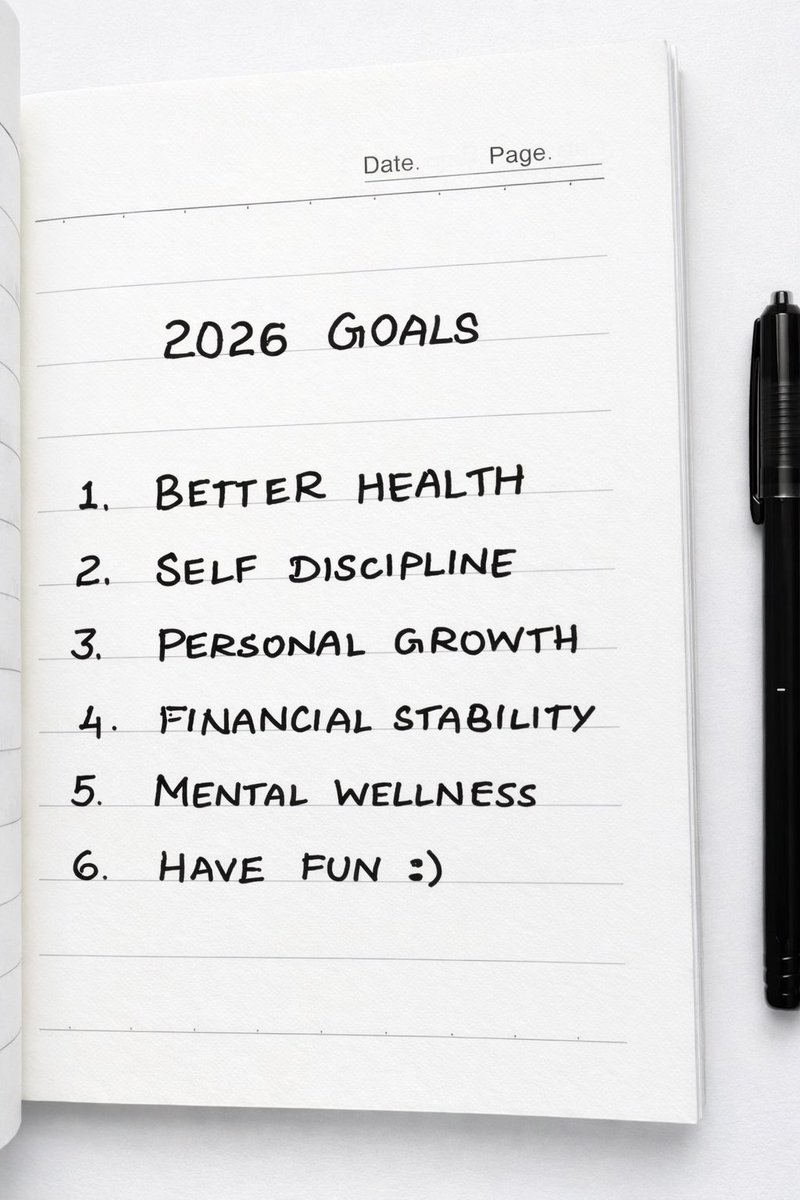 Date. Page.
2026 GOALS
1. BETTER HEALTH
2. SELF DISCIPLINE
3. PERSONAL GROWTH
4. FINANCIAL STABILITY
5. MENTAL WELLNESS
6. HAVE FUN :)